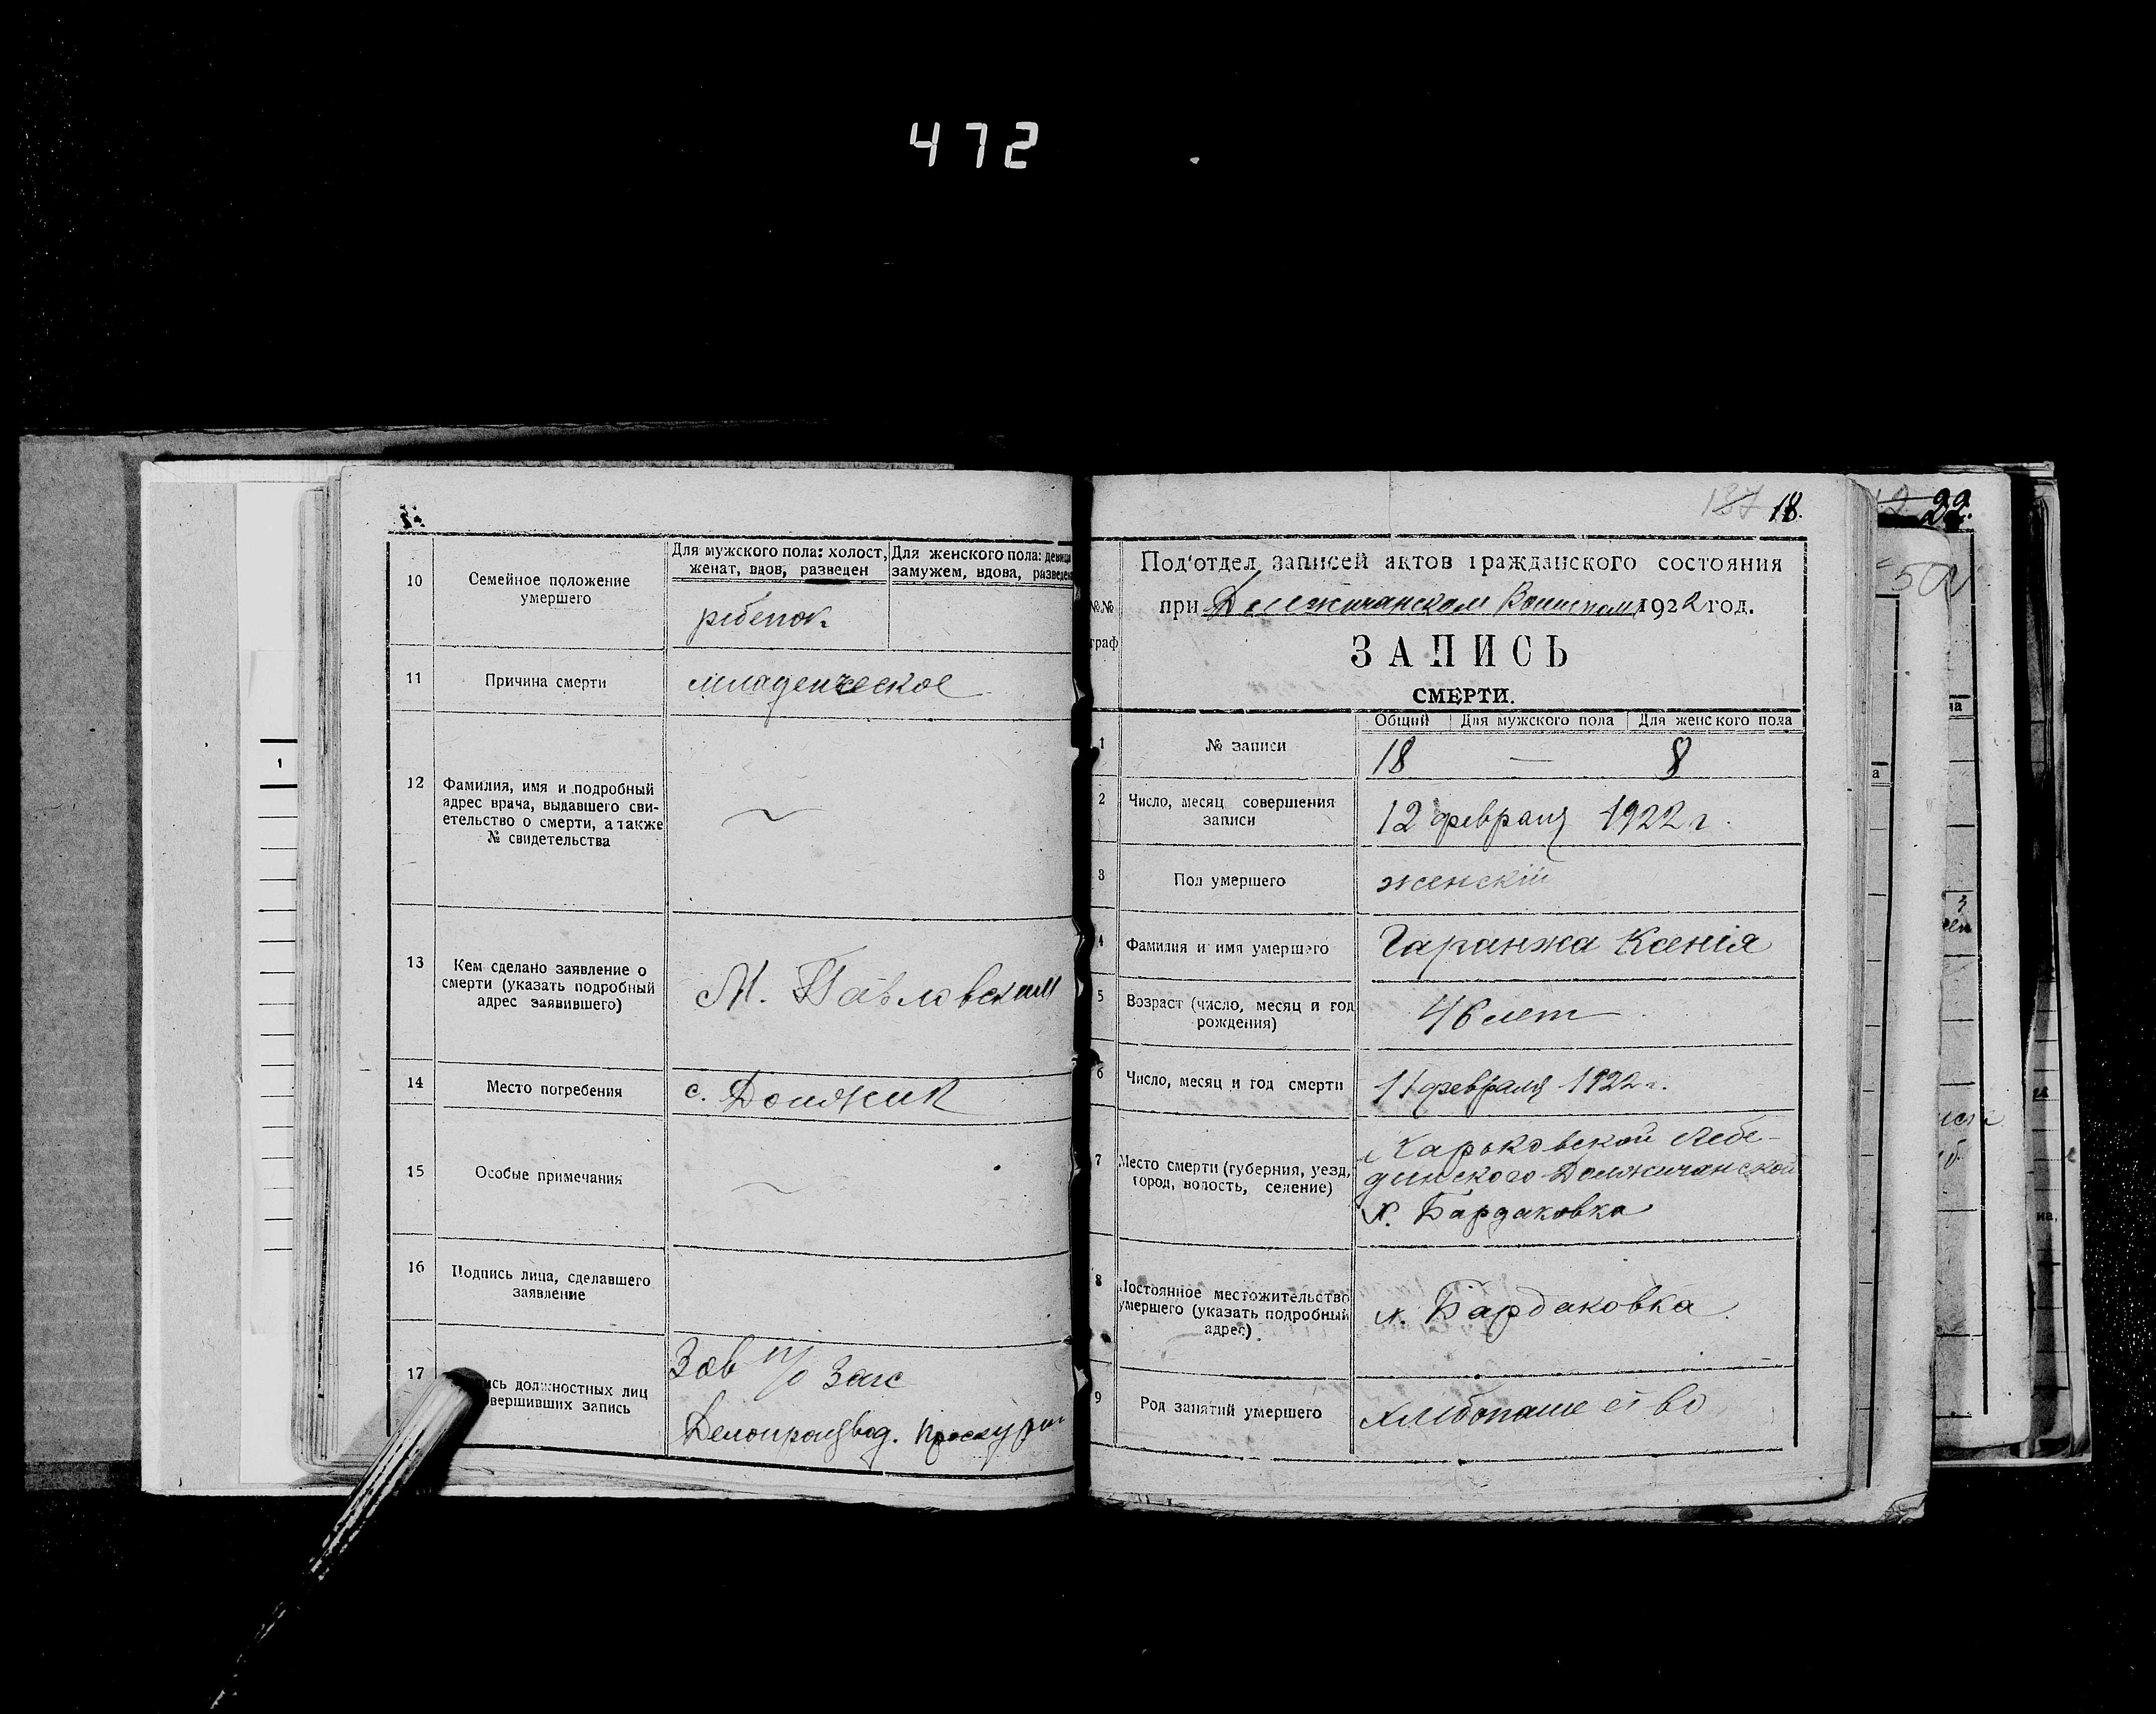 472
10
Семейное положение
умершего
Для мужского пола: холост,
женат, вдов, разведен
Для женского пола: девица
замужем, вдова, разведен
ребенок
11
Причина смерти
младенческое
12
Фамилия, имя и подробный
адрес врача, выдавшего сви-
етельство о смерти, а также
№ свидетельства
13
Кем сделано заявление о
смерти (указать подробный
адрес заявившего)
М. Павловским
14
Место погребения
с. Должик
15
Особые примечания
16
Подпись лица, сделавшего
заявление
17
ись должностных лиц
вершивших запись
Зав п/о Загс
Делопроизвод.
137 18.
Под'отдел записей актов гражданского состояния
при Должичанском 1922 год.
№№
граф
ЗАПИСЬ
СМЕРТИ.
Общий
Для мужского пола
Для женского пола
1
№ записи
18 — 8
2
Число, месяц совершения
записи
12 февраля 1922 г.
3
Пол умершего
женскій
4
Фамилия и имя умершего
Гаранжа Ксенія
5
Возраст (число, месяц и год
рождения)
46 лет
6
Число, месяц и год смерти
11 февраля 1922 г.
7
Место смерти (губерния, уезд,
город, волость, селение)
Харьковской Лебе-
динского Должичанской
х. Бардаковка
8
Постоянное местожительство
умершего (указать подробный
адрес)
х. Бардаковка
9
Род занятий умершего
хлебопашество
22.
50
1